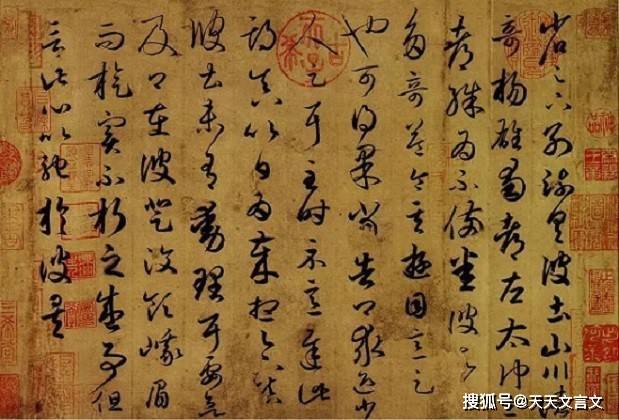 省足下別疏具彼土山川諸
奇楊雄蜀都左太沖三
都殊為不備悉彼故為
多奇益令其遊目意足
也可得果當告卿求迎少
人足耳至時示意遲此
期真以日為歲想足下鎮
彼土未有動理耳要欲
及卿在彼登汶領峨眉
而旋實不朽之盛事但
言此心以馳於彼矣
搜狐号@天天文言文